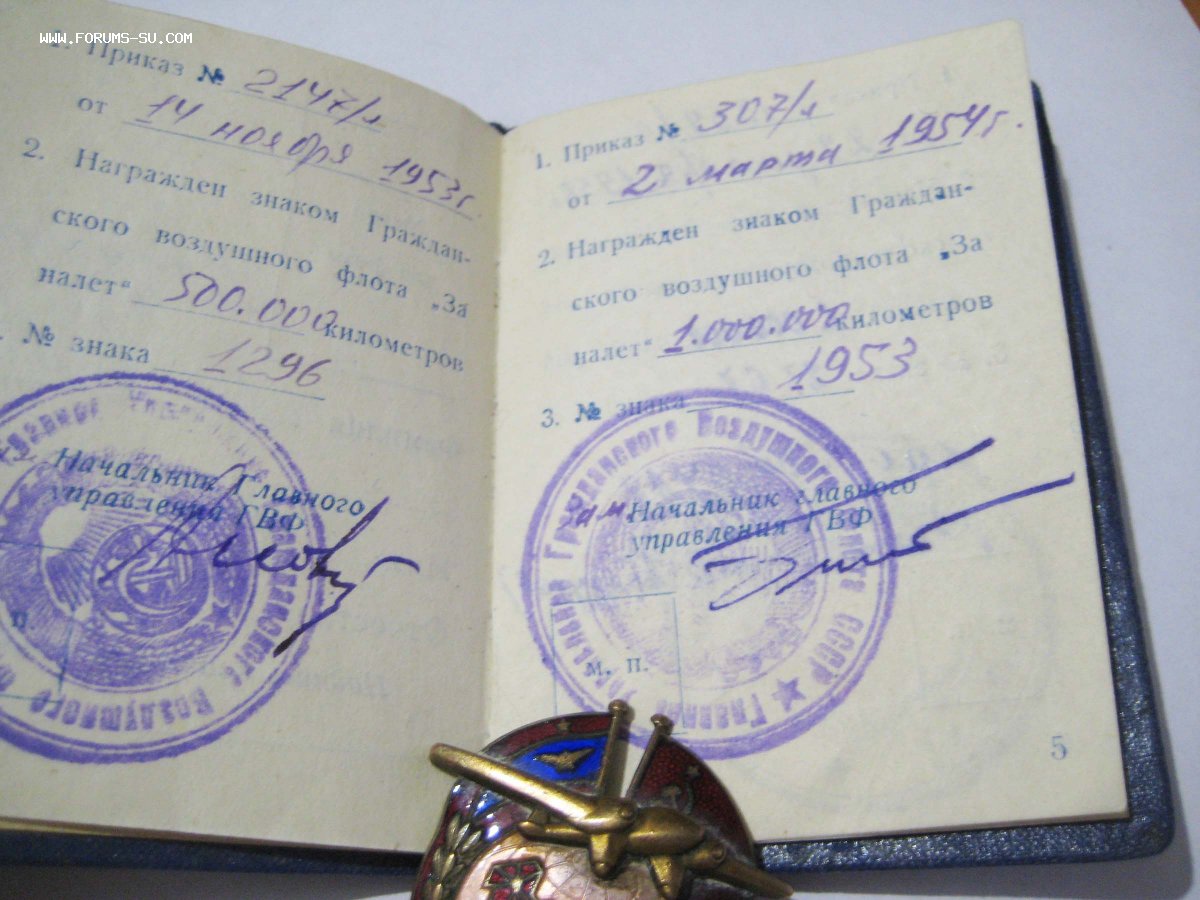 WWW.FORUMS-SU.COM
1. Приказ № 2147/л
от 14 ноября 1953г.
2. Награжден знаком Граждан-
ского воздушного флота „За
налет“ 500.000 километров
№ знака 1296
Начальник Главного
управления ГВФ
П.
Главное
Воздушного
1. Приказ № 307/л
от 2 марта 1954г.
2. Награжден знаком Граждан-
ского воздушного флота „За
налет“ 1.000.000 километров
3. № знака 1953
зам Начальник главного
управления ГВФ
М. П.
Главное управление Гражданского Воздушного Флота СССР
5